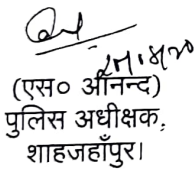 (एस० आनन्द)
पुलिस अधीक्षक,
शाहजहाँपुर।